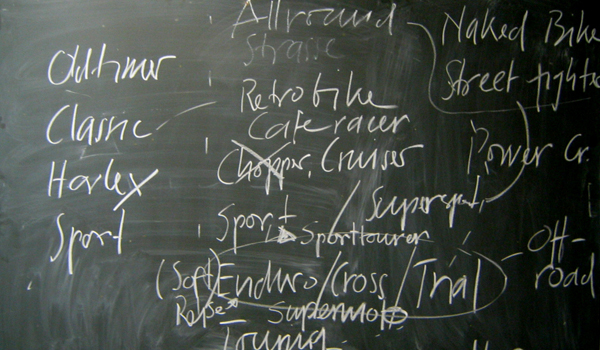 Oldtimer
Classic
Harley
Sport
Allround
Strasse
Retrobike
Caferacer
Chopper, Cruiser
Supersport
Sport
Sporttourer
(Soft) Enduro/Cross/Trial
Supermoto
Naked Bike
Street fighte
Power Cr.
Off-
road